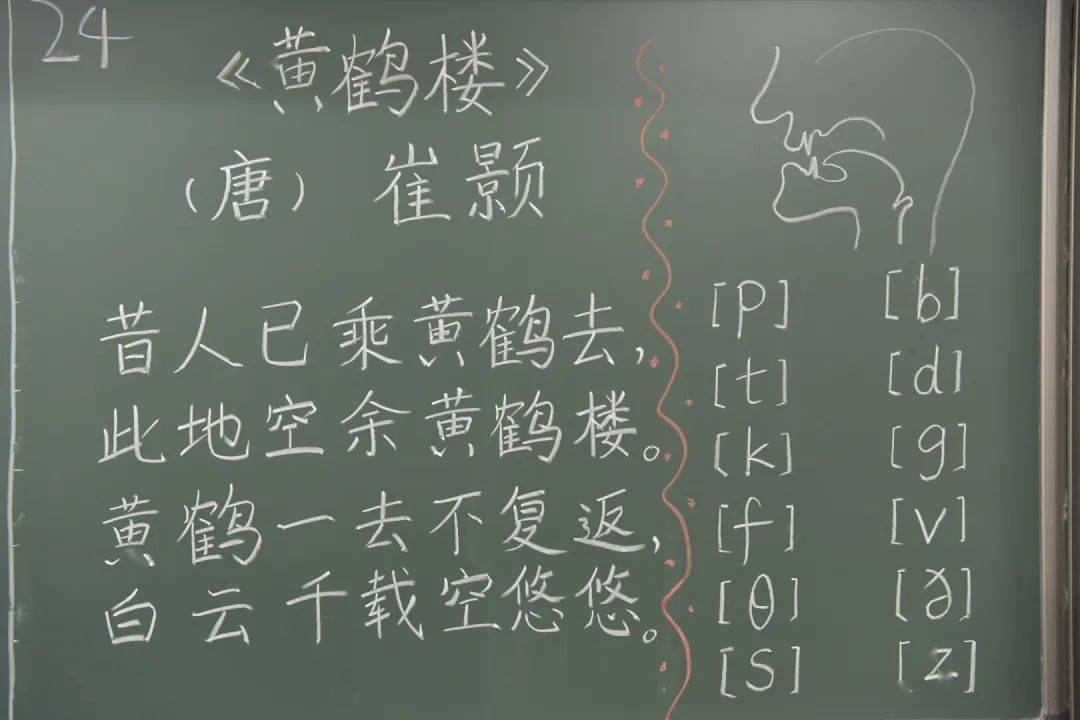 24
《黄鹤楼》
（唐） 崔颢
昔人已乘黄鹤去，
此地空余黄鹤楼。
黄鹤一去不复返，
白云千载空悠悠。
[p] [b]
[t] [d]
[k] [g]
[f] [v]
[θ] [ð]
[s] [z]